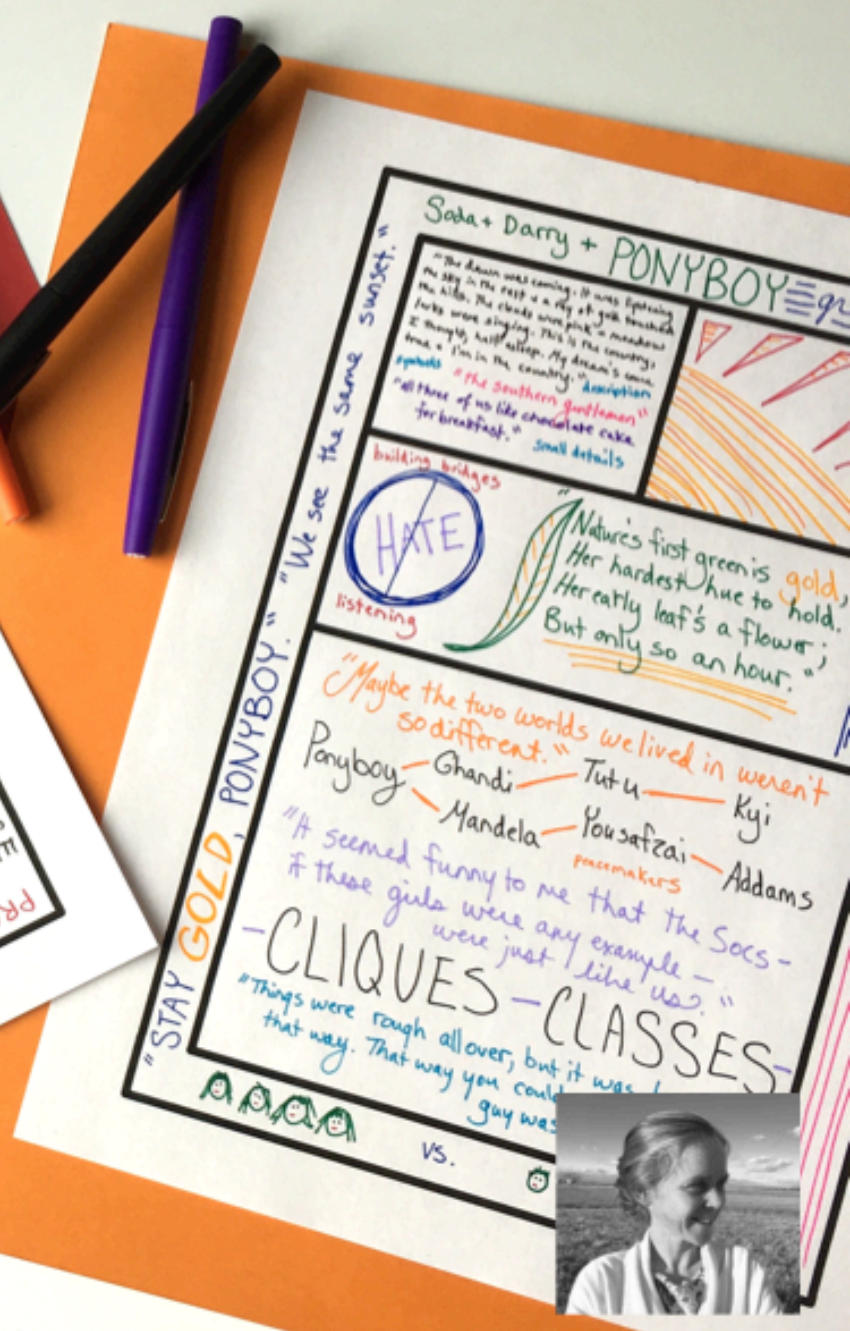 Soda + Darry + PONYBOY
"The dawn was coming. It was lightening
the sky in the east + a ray of gold touched
the hills. The clouds were pink + meadow
larks were singing. This is the country,
I thought, half asleep. My dream's come
true + I'm in the country."
symbols
description
"the southern gentleman"
"all three of us like chocolate cake
for breakfast."
small details
building bridges
HATE
listening
"Nature's first green is gold,
Her hardest hue to hold.
Her early leaf's a flower;
But only so an hour."
"Maybe the two worlds we lived in weren't
so different."
Ponyboy Ghandi Tutu Kyi
Mandela Yousafzai Addams
peacemakers
"It seemed funny to me that the Socs -
if these girls were any example -
were just like us."
- CLIQUES - CLASSES -
"Things were rough all over, but it was
that way. That way you could
guy was
"STAY GOLD, PONYBOY." "We see the same sunset."
vs.